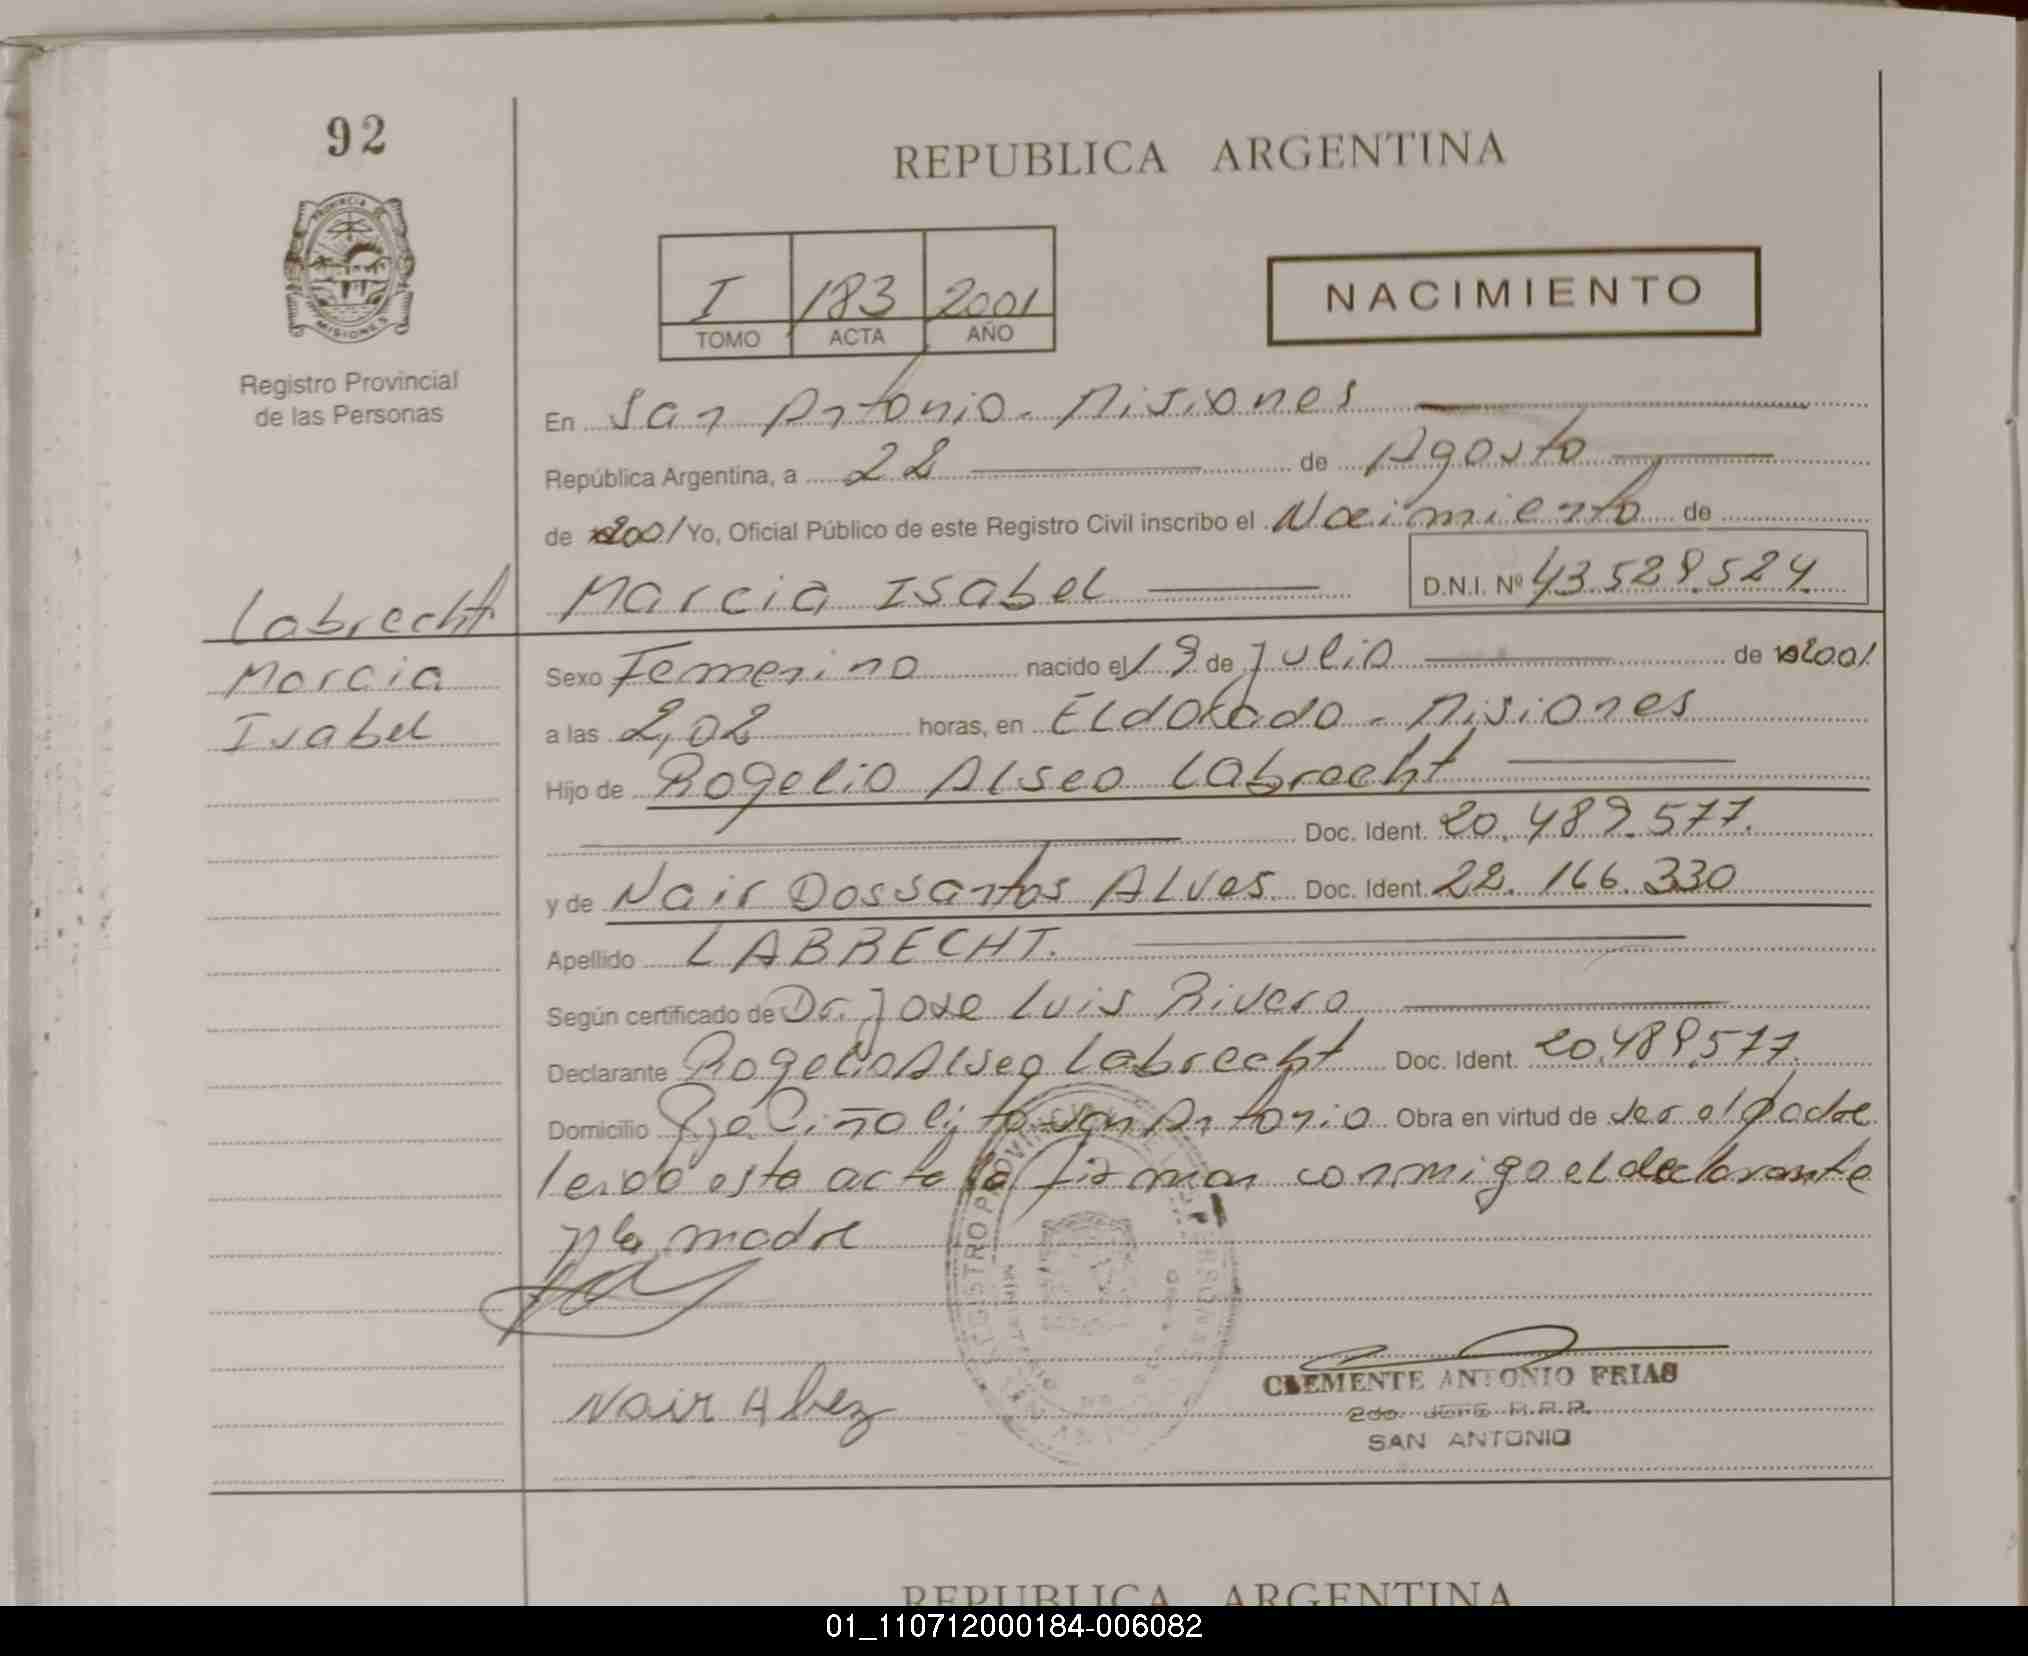 92
REPUBLICA ARGENTINA
PROVINCIA DE
MISIONES
Registro Provincial
de las Personas
I 183 2001
TOMO ACTA AÑO
NACIMIENTO
En San Antonio - Misiones
República Argentina, a 22 de Agosto
de 2001 Yo, Oficial Público de este Registro Civil inscribo el Nacimiento de
Labrecht
Marcia Isabel D.N.I. Nº 43.529.524.
Marcia
Isabel
Sexo Femenino nacido el 19 de Julio de 2001
a las 2,02 horas, en Eldorado - Misiones
Hijo de Rogelio Alseo Labrecht
Doc. Ident. 20.489.577.
y de Nair Dossantos Alves Doc. Ident. 22.166.330
Apellido LABRECHT.
Según certificado de Dr. Jose Luis Rivero
Declarante Rogelio Alseo Labrecht Doc. Ident. 20.489.577.
Domicilio San Antonio Obra en virtud de ser el padre
leido esta acta la firman conmigo el declarante
y la madre
Nair Alvez
CLEMENTE ANTONIO FRIAS
2do. JEFE R.P.P.
SAN ANTONIO
REPUBLICA ARGENTINA
01_110712000184-006082